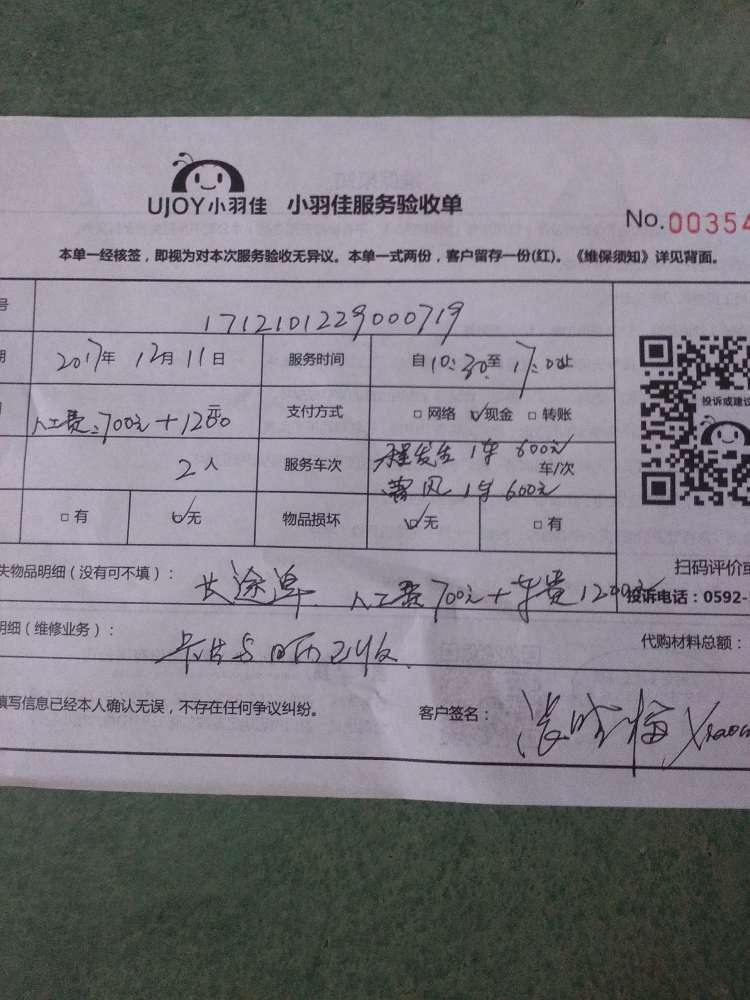 UJOY小羽佳 小羽佳服务验收单
No.00354
本单一经核签，即视为对本次服务验收无异议。本单一式两份，客户留存一份(红)。《维保须知》详见背面。
号 1712101229000719
期 2017年 12月 11日 服务时间 自10:30至 17:00止
人工费:700元+1200 支付方式 □ 网络 ☑现金 □ 转账
2人 服务车次 程发生 1车 600元 车/次
1车 600元
□ 有 ☑无 物品损坏 ☑无 □ 有
投诉或建议
扫码评价或
失物品明细（没有可不填）： 长途单. 人工费700元+车费1200元
投诉电话：0592-
明细（维修业务）： 已收
代购材料总额：
填写信息已经本人确认无误，不存在任何争议纠纷。 客户签名：